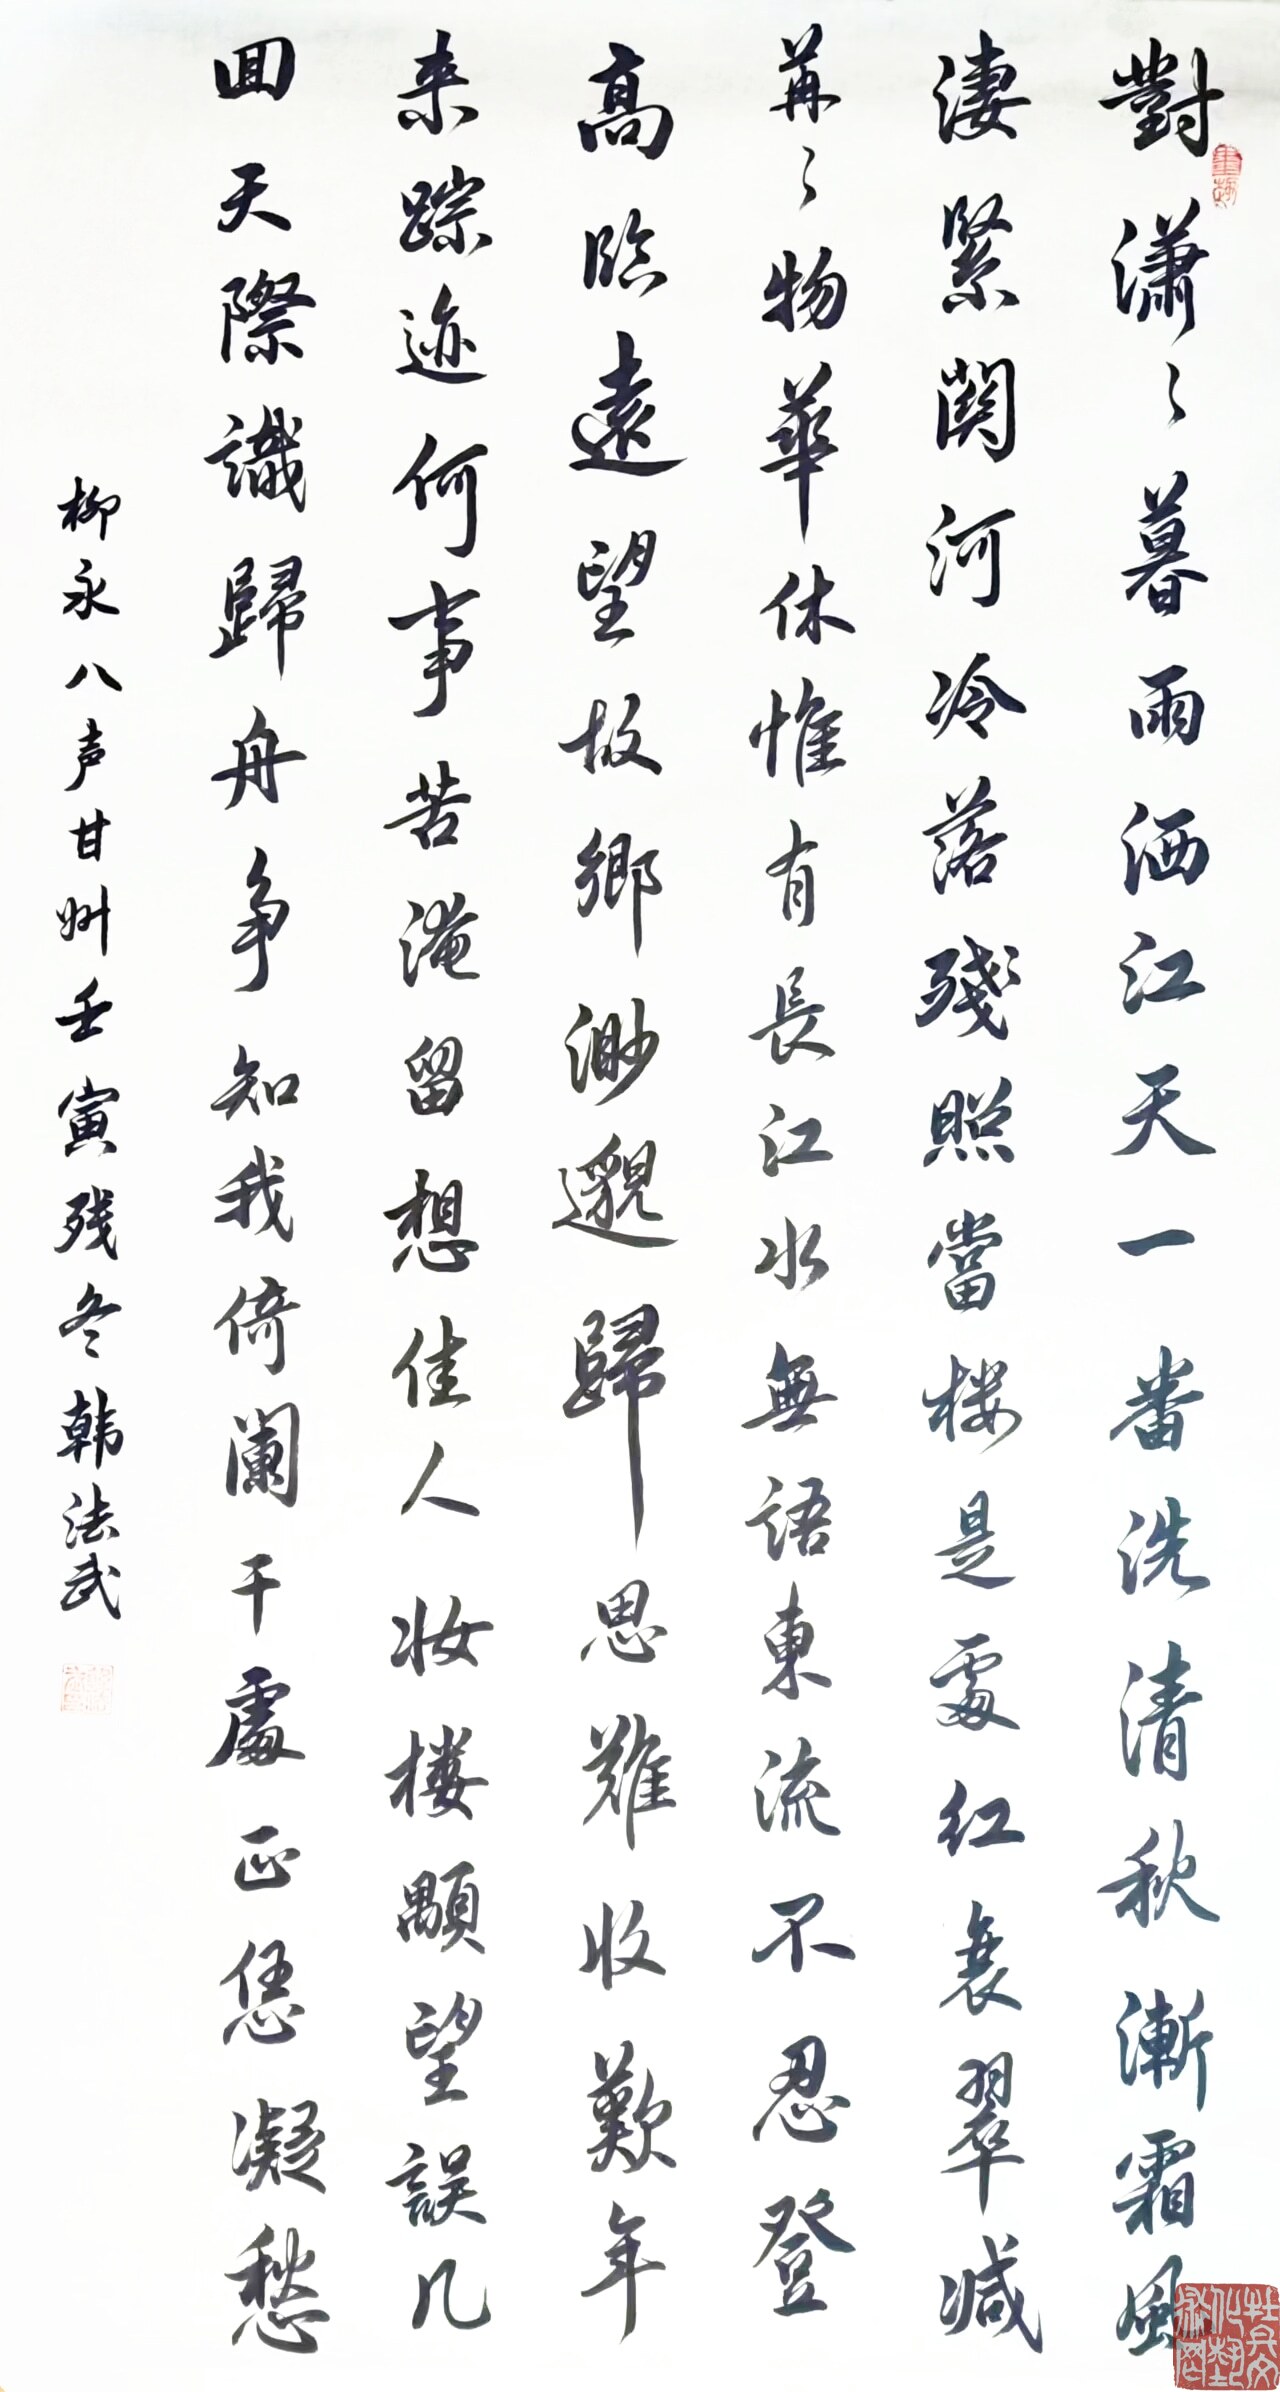 對潇〻暮雨洒江天一番洗清秋漸霜風
淒緊関河冷落殘照當楼是處红衰翠减
苒〻物華休惟有長江水無語東流不忍登
高臨遠望故鄉渺邈歸思難收歎年
来踪迹何事苦淹留想佳人妆楼顒望誤几
囬天際識歸舟争知我倚闌干處正恁凝愁
柳永八声甘州壬寅残冬韩法武